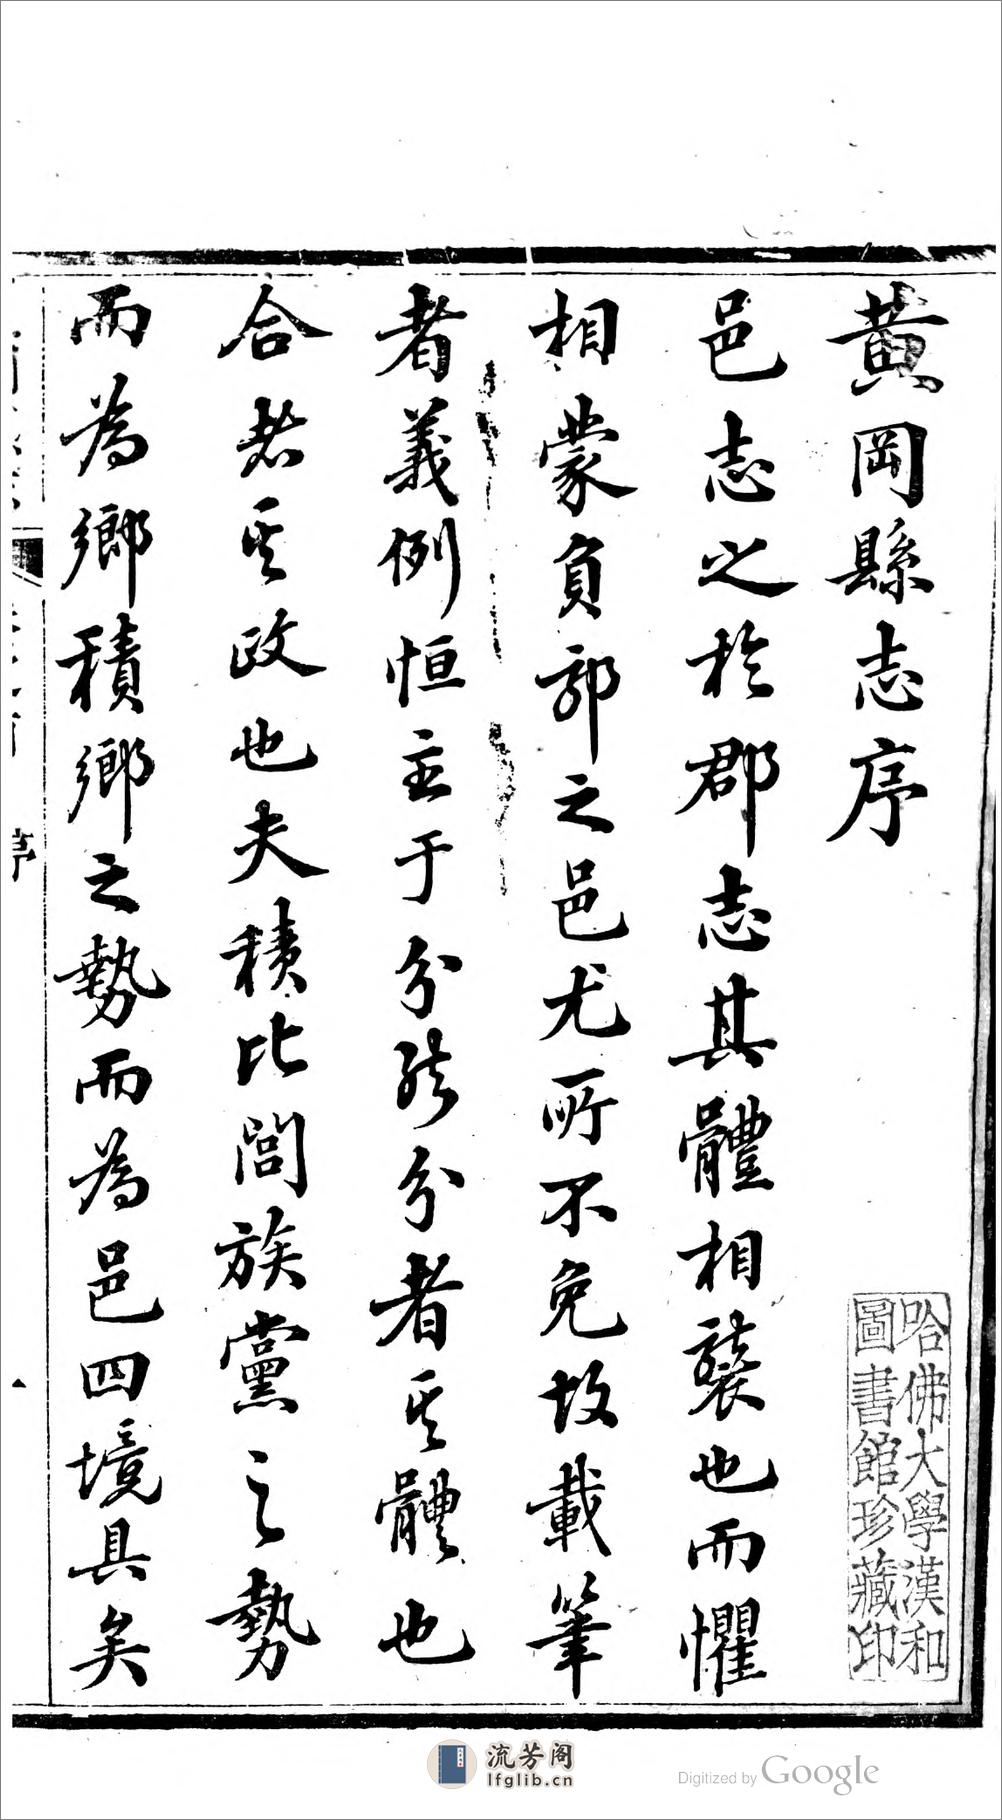 黄岡縣志序
邑志之於郡志其體相襲也而懼
相蒙負郭之邑尤所不免故載筆
者義例恒主于分然分者其體也
合者其政也夫積比閭族黨之勢
而為鄉積鄉之勢而為邑四境具矣
序
哈佛大學漢和
圖書館珍藏印
流芳阁
lfglib.cn
Digitized by Google